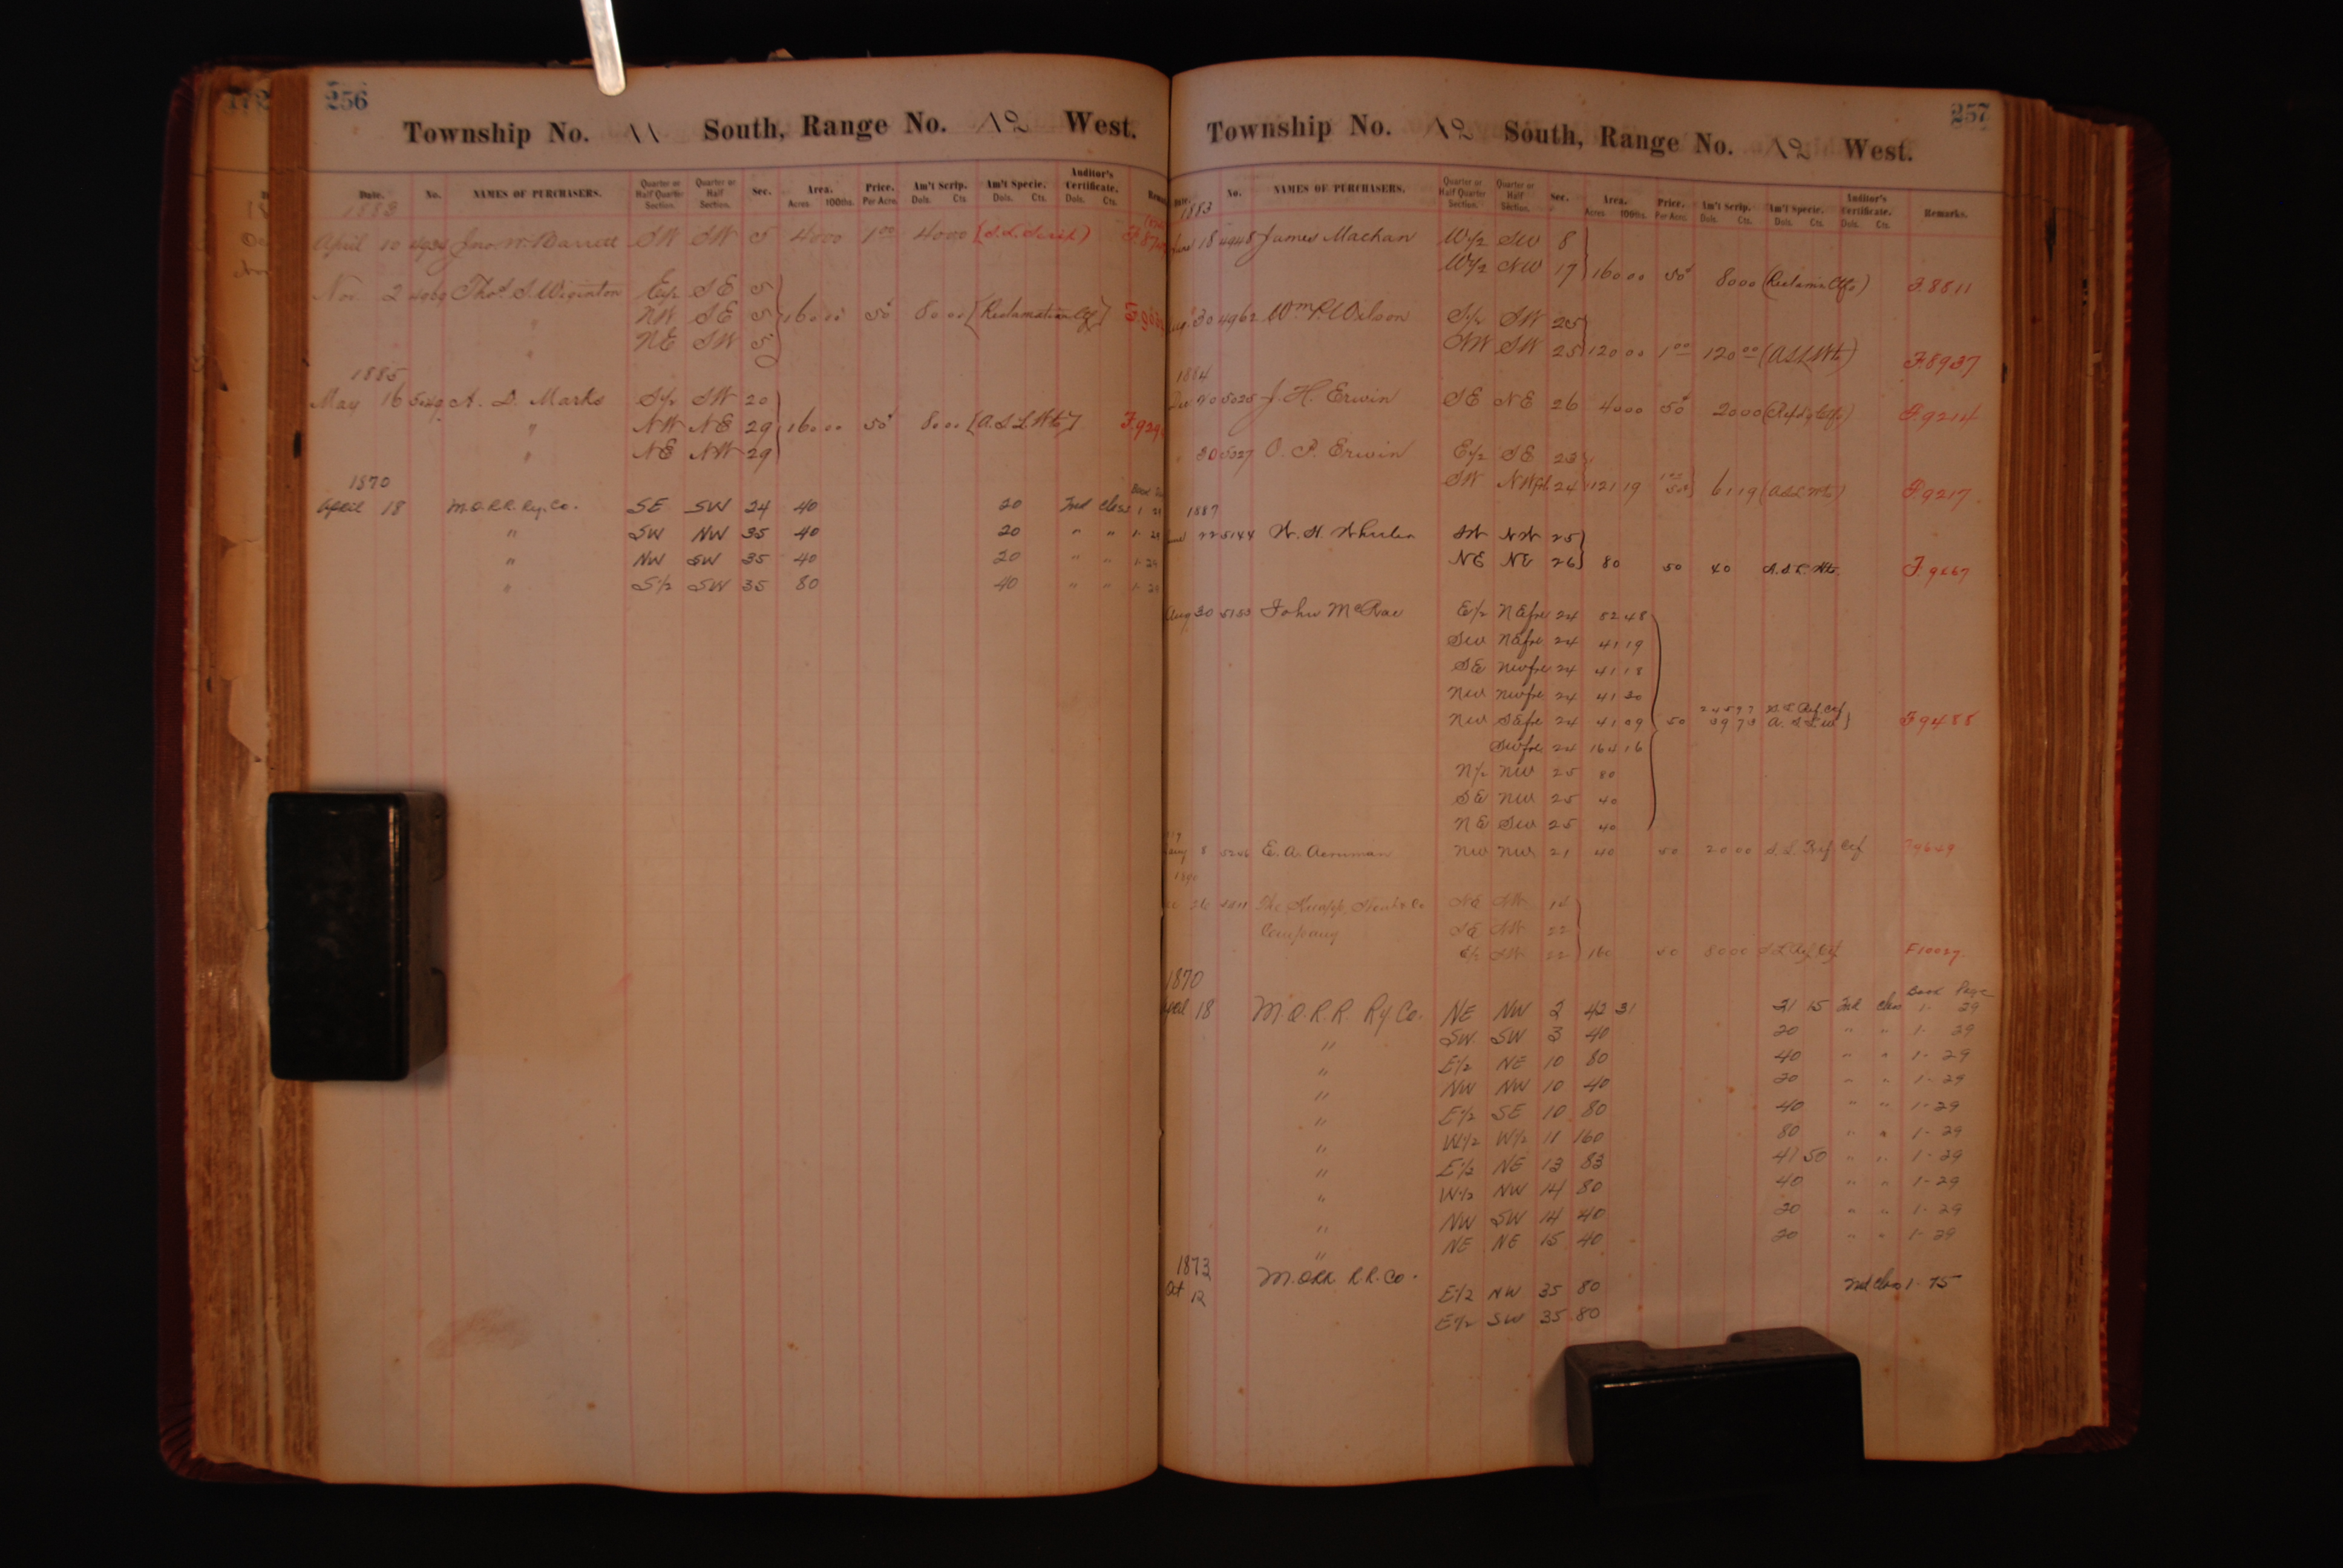 256
Township No. 11 South, Range No. 12 West.
Date. No. NAMES OF PURCHASERS. Quarter or Half Quarter Section. Quarter or Half Section. Sec. Area. Acres 100ths. Price. Per Acre. Am't Scrip. Dols. Cts Am't Specie. Dols. Cts. Auditor's Certificate. Dols. Cts.
1883
April 10 4934 Jno. W. Barrett SW SW 5 40 00 1 00 40 00
Nov. 2 4969 Thos. S. Wiginton E 1/2 SE 5
" NW SE 5 160 00 50 80 00 [Reclamation Cf]
" NE SW 5
1885
May 16 5049 A. D. Marks S 1/2 SW 20
" NW NE 29 160 00 50 80 00 [A.S.L. Wts]
" NE NW 29
1870
April 18 M.O.R.R. Ry. Co. SE SW 24 40 20
" SW NW 35 40 20 " "
" NW SW 35 40 20 " "
" S 1/2 SW 35 80 40 " "
257
Township No. 12 South, Range No. 12 West.
Date. No. NAMES OF PURCHASERS. Quarter or Half Quarter Section. Quarter or Half Section. Sec. Area. Acres 100ths. Price. Per Acre. Am't Scrip. Dols. Cts. Am't Specie. Dols. Cts. Auditor's Certificate. Dols. Cts. Remarks.
1883
18 4948 James Machan W 1/2 SW 8
W 1/2 NW 17 160 00 50 80 00 F. 8811
30 4962 Wm. P. Wilson S 1/2 SW 25
NW SW 25 120 00 1 00 120 00 (A.S.L. Wts) F. 8937
1884
5025 J. H. Erwin SE NE 26 40 00 50 20 00 F. 9214
" 30 5027 O. P. Erwin E 1/2 SE 23
SW NW frl 24 121 19 61 19 (A.S.L. Wts) F. 9217
1887
22 5144 W. H. Wheeler SW NW 25
NE NE 26 80 50 40 A.S.L. Wts. F. 9467
Aug 30 5153 John McRae E 1/2 NE frl 24 82 48
SW NE frl 24 41 19
SE NW frl 24 41 18
NW NW frl 24 41 20
NW SE frl 24 41 09 50 F 9488
SW frl 24 164 16
N 1/2 NW 25 80
SE NW 25 40
NE SW 25 40
8 5246 E. A. NW NW 21 40 50 20 00 9649
1890
26 The Company
SE NW 22
E 1/2 SW 22 160 50 80 00 F 10027
1870
April 18 M.O.R.R. Ry Co. NE NW 2 42 31 21 15 class Book 1 - Page 29
" SW SW 3 40 20 " " 1 - 29
" E 1/2 NE 10 80 40 " " 1 - 29
" NW NW 10 40 20 " " 1 - 29
" E 1/2 SE 10 80 40 " " 1 - 29
" W 1/2 W 1/2 11 160 80 " " 1 - 29
" E 1/2 NE 13 83 41 50 " " 1 - 29
" W 1/2 NW 14 80 40 " " 1 - 29
" NW SW 14 40 20 " " 1 - 29
" NE NE 15 40 20 " " 1 - 29
1873
Oct 12 M.O.R.R. R.R. Co. E 1/2 NW 35 80 class 1 - 75
E 1/2 SW 35 80